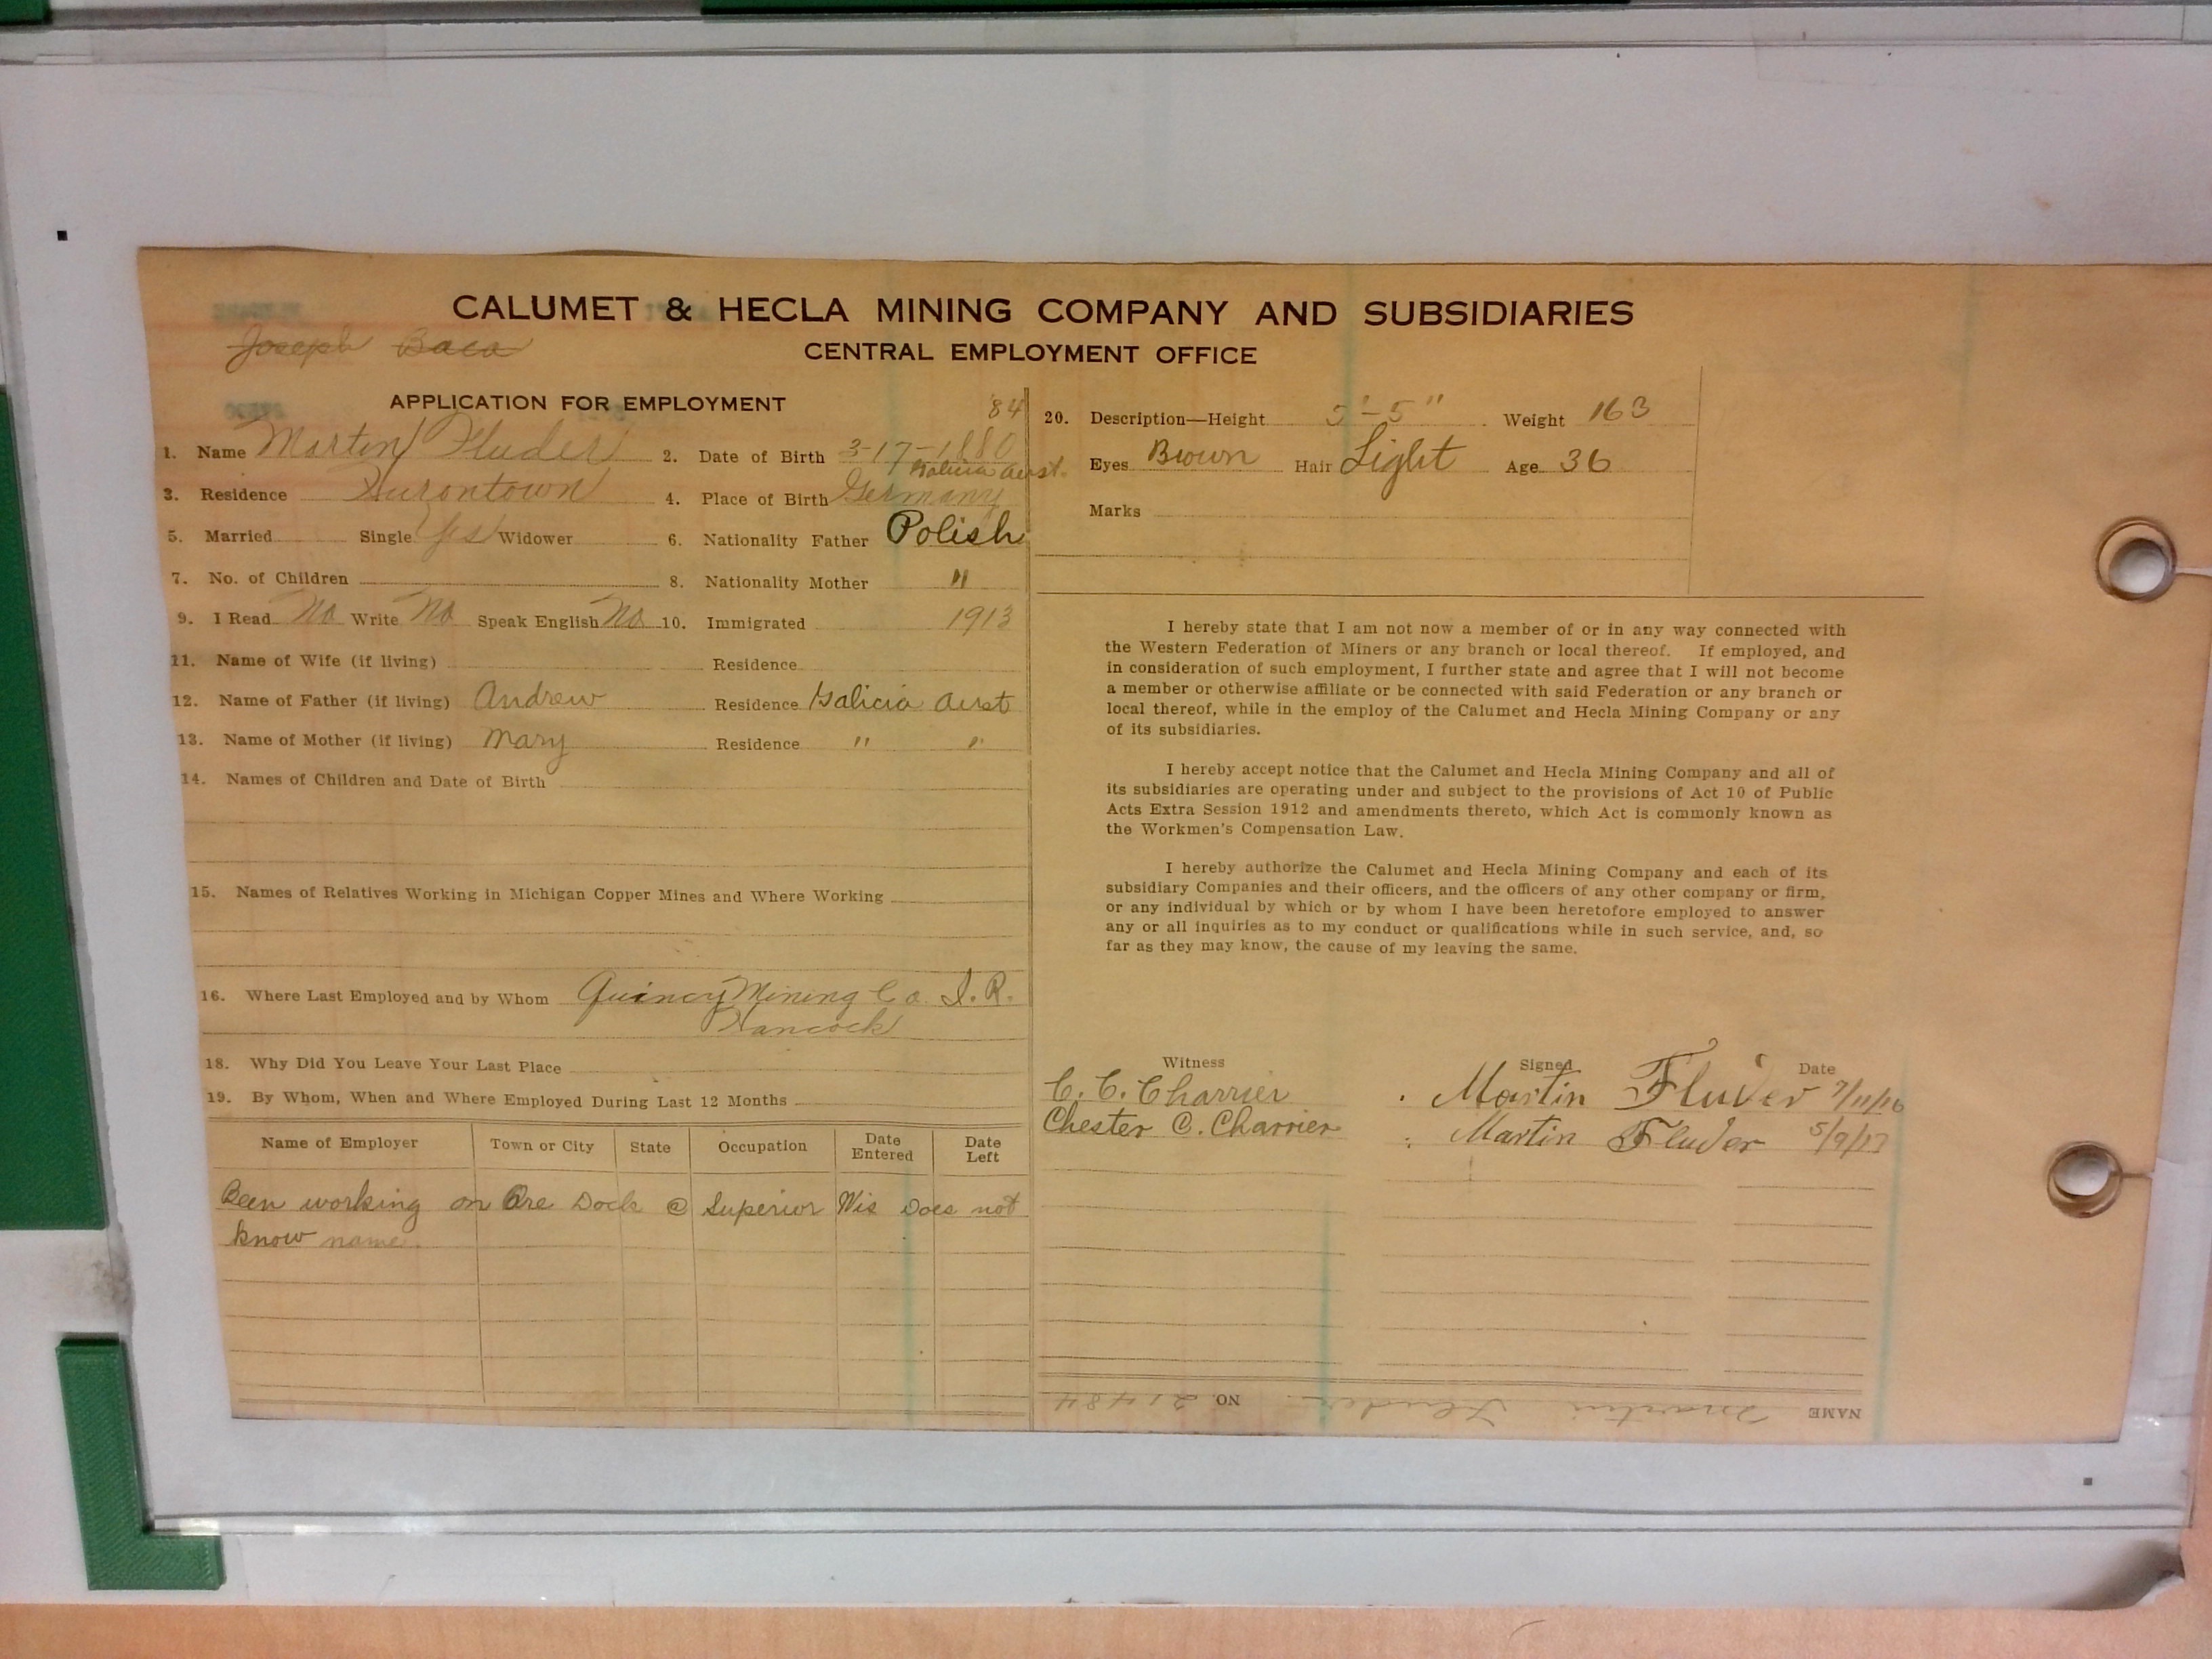 CALUMET & HECLA MINING COMPANY AND SUBSIDIARIES
Joseph Baca
CENTRAL EMPLOYMENT OFFICE
APPLICATION FOR EMPLOYMENT
'84
1. Name Martin Fluder 2. Date of Birth 3-17-1880
Galicia Aust.
3. Residence Hurontown 4. Place of Birth Germany
5. Married Single Yes Widower 6. Nationality Father Polish
7. No. of Children 8. Nationality Mother "
9. I Read No Write No Speak English No 10. Immigrated 1913
11. Name of Wife (if living) Residence
12. Name of Father (if living) Andrew Residence Galicia Aust
13. Name of Mother (if living) Mary Residence " "
14. Names of Children and Date of Birth
15. Names of Relatives Working in Michigan Copper Mines and Where Working
16. Where Last Employed and by Whom Quincy Mining Co. S.R.
Hancock
18. Why Did You Leave Your Last Place
19. By Whom, When and Where Employed During Last 12 Months
Name of Employer Town or City State Occupation Date Entered Date Left
Been working on Ore Dock @ Superior Wis Does not
know name.
20. Description—Height 5'-5" Weight 163
Eyes Brown Hair Light Age 36
Marks
I hereby state that I am not now a member of or in any way connected with
the Western Federation of Miners or any branch or local thereof. If employed, and
in consideration of such employment, I further state and agree that I will not become
a member or otherwise affiliate or be connected with said Federation or any branch or
local thereof, while in the employ of the Calumet and Hecla Mining Company or any
of its subsidiaries.
I hereby accept notice that the Calumet and Hecla Mining Company and all of
its subsidiaries are operating under and subject to the provisions of Act 10 of Public
Acts Extra Session 1912 and amendments thereto, which Act is commonly known as
the Workmen's Compensation Law.
I hereby authorize the Calumet and Hecla Mining Company and each of its
subsidiary Companies and their officers, and the officers of any other company or firm,
or any individual by which or by whom I have been heretofore employed to answer
any or all inquiries as to my conduct or qualifications while in such service, and, so
far as they may know, the cause of my leaving the same.
Witness Signed Date
C. C. Charrier Martin Fluder 7/11/16
Chester C. Charrier Martin Fluder 5/9/17
NAME Martin Fluder NO. 21484